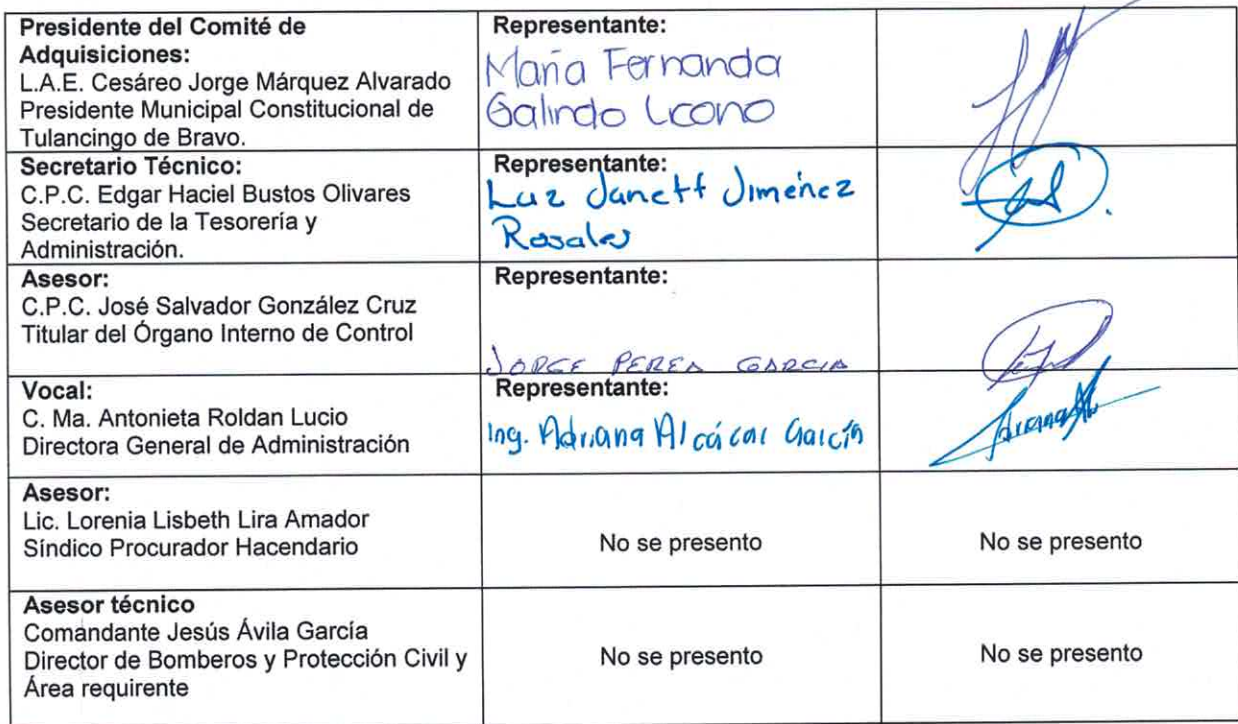 Presidente del Comité de
Adquisiciones:
L.A.E. Cesáreo Jorge Márquez Alvarado
Presidente Municipal Constitucional de
Tulancingo de Bravo.
Representante:
María Fernanda
Galindo
Secretario Técnico:
C.P.C. Edgar Haciel Bustos Olivares
Secretario de la Tesorería y
Administración.
Representante:
Luz Janett Jiménez
Rosales
Asesor:
C.P.C. José Salvador González Cruz
Titular del Órgano Interno de Control
Representante:
JORGE PEREA GARCIA
Vocal:
C. Ma. Antonieta Roldan Lucio
Directora General de Administración
Representante:
Ing. Adriana Alcácar García
Asesor:
Lic. Lorenia Lisbeth Lira Amador
Síndico Procurador Hacendario
No se presento
No se presento
Asesor técnico
Comandante Jesús Ávila García
Director de Bomberos y Protección Civil y
Área requirente
No se presento
No se presento